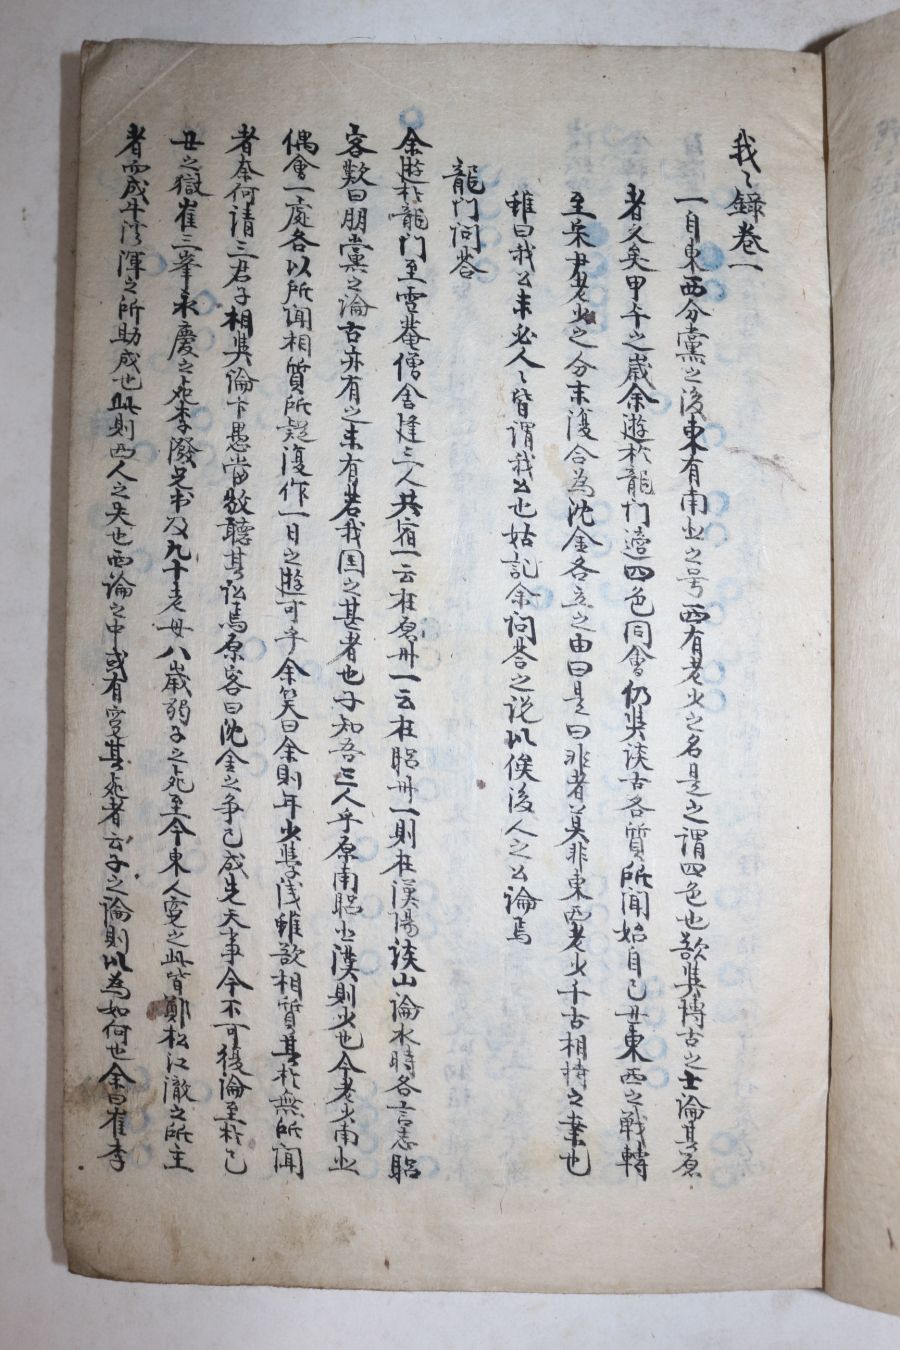 我〻錄卷一
一自東西分黨之後東有南北之号西有老少之名是之謂四色也欲與博古之士論其原
者久矣甲午之歲余遊於龍門適四色同會仍與談古各質所聞始自己丑東西之戰轉
至宋君老少之分末復合為沈金各立之由曰是曰非者莫非東西老少千古相持之案也
雖曰我公未必人〻皆謂我公也姑記余問答之說以俟後人之公論焉
龍門問答
余遊於龍門至雪菴僧舍逢三人共宿一云在原州一云在驪州一則在漢陽談山論水時各言志驪
客歎曰朋黨之論古亦有之未有若我国之甚者也子知吾三人乎原南驪北漢則少也今老少南北
偶會一處各以所聞相質所疑復作一日之遊可乎余笑曰余則年少學淺雖欲相質其於無所聞
者奈何請三君子相與論卞愚當敬聽其訟焉原客曰沈金之爭已成先天事今不可復論至於己
丑之獄崔三峯永慶之死李潑兄弟及九十老母八歲弱子之死至今東人寃之此皆鄭松江澈之所主
者而成牛溪渾之所助成也此則西人之失也西論之中或有寃其死者云子之論則以為如何也余曰崔李